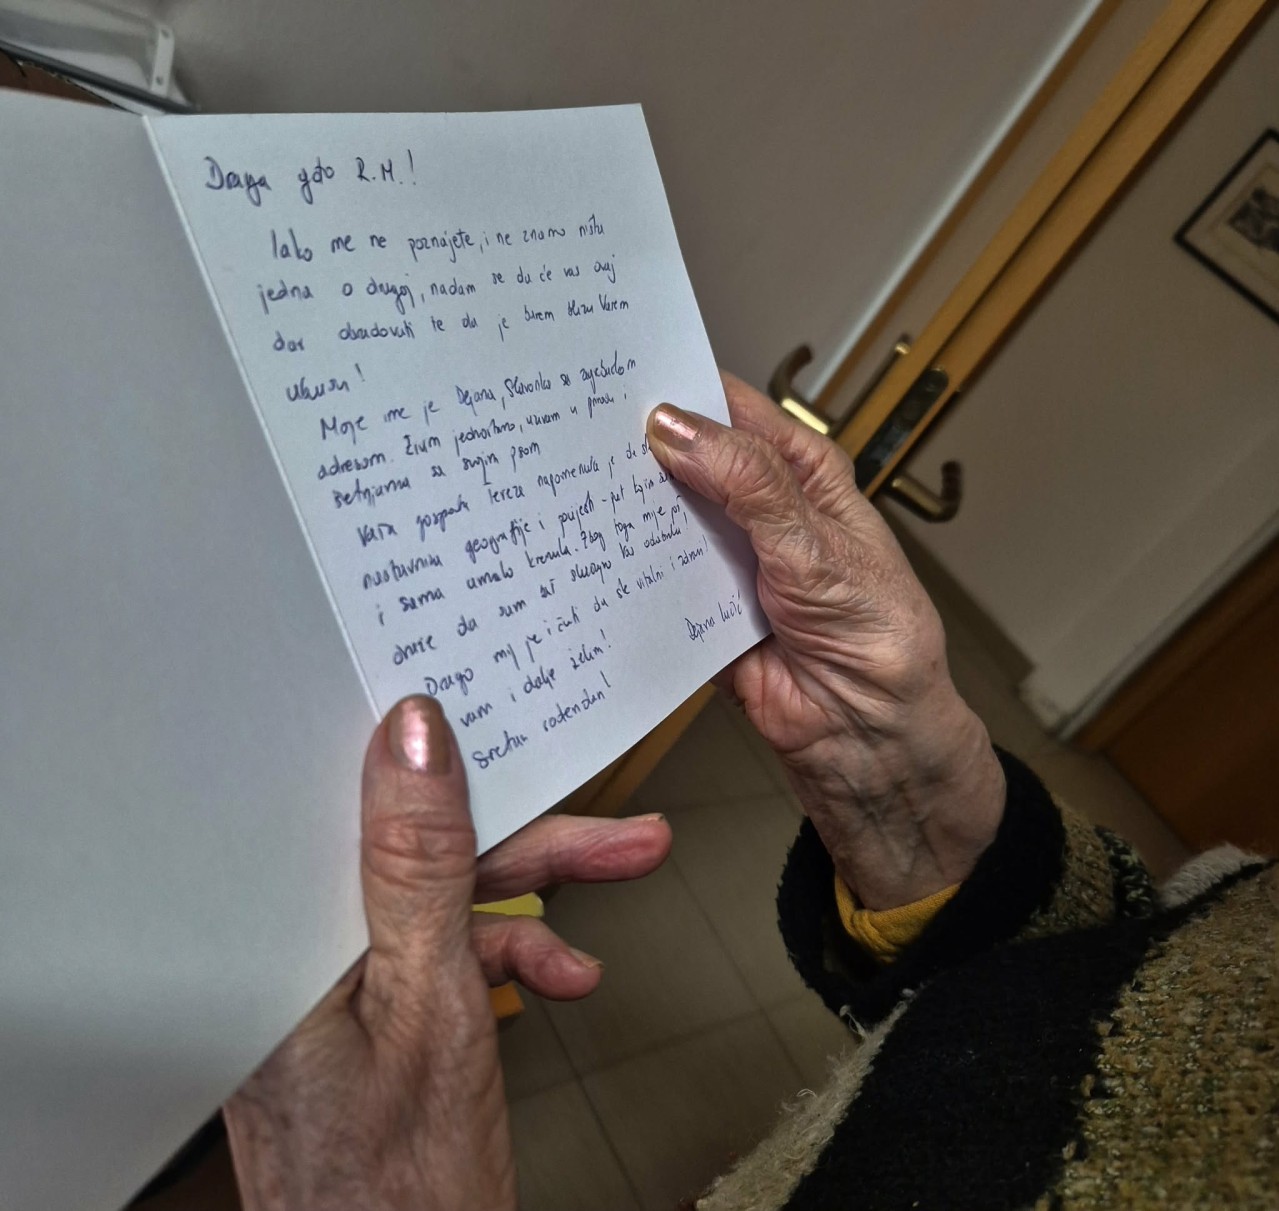 Draga gđo R.M.!
Iako me ne poznajete, i ne znamo ništa
jedna o drugoj, nadam se da će vas ovaj
dar obradovati te da je barem blizu Vašem
ukusu!
Moje ime je Dejana, Slavonka sa zagrebačkom
adresom. Živim jednostavno, uživam u prirodi i
šetnjama sa svojim psom
Vaša gospođa Tereza napomenula je da st
nastavnica geografije i povijesti - put kojim sam
i sama umalo krenula. Zbog toga mi je još
draže da sam baš slučajno Vas odabrala!
Drago mi je i čuti da ste vitalni i zdravi!
vam i dalje želim!
Sretan rođendan!
Dejana Lucić